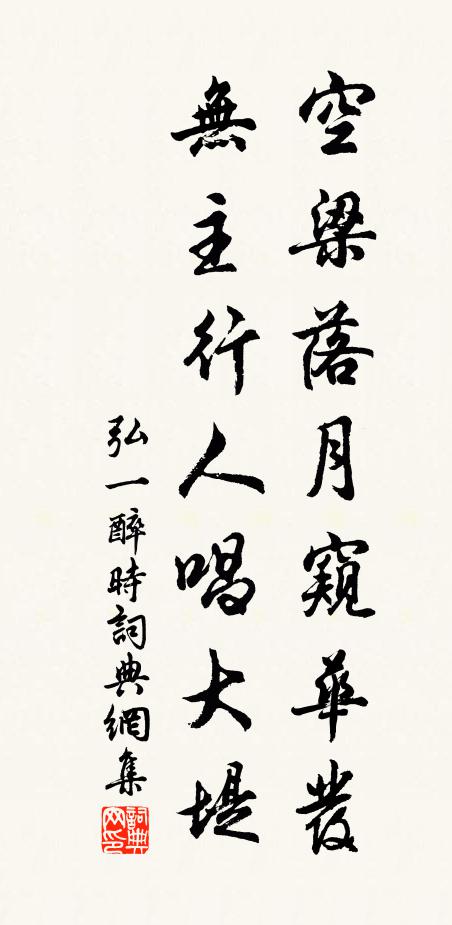 空梁落月窺華髮
無主行人唱大堤
弘一醉時詞典網集
詞典网印